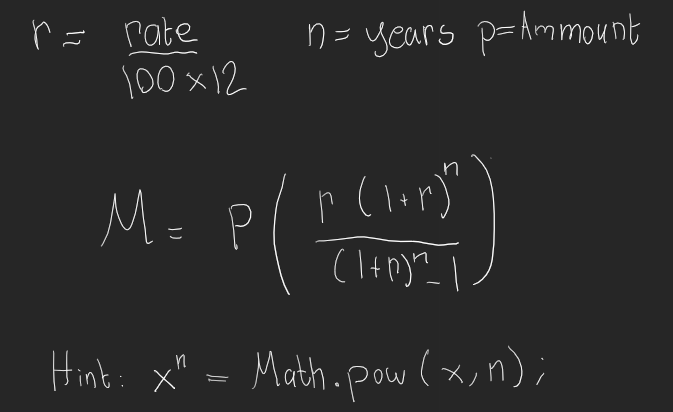 r = rate / 100 x 12 n = years p = Ammount
M = P ( r (1+r)^n / (1+r)^n - 1 )
Hint: x^n = Math.pow(x,n);